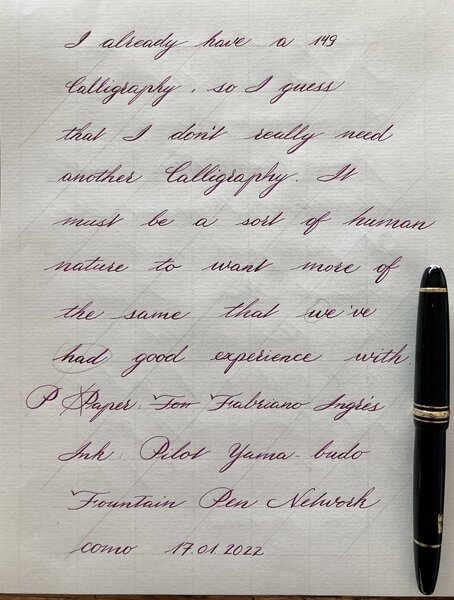 I already have a 149
Calligraphy, so I guess
that I don't really need
another Calligraphy. It
must be a sort of human
nature to want more of
the same that we've
had good experience with.
P Paper: Fon Fabriano Ingres
Ink: Pilot Yama-budo
Fountain Pen Network
como 17.01.2022